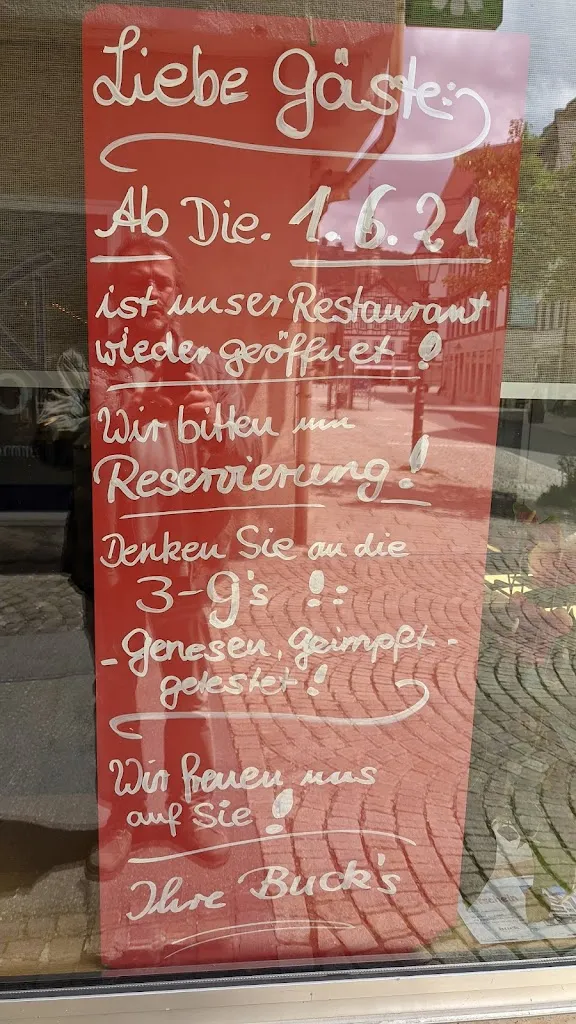 Liebe Gäste:
Ab Die. 1.6.21
ist unser Restaurant
wieder geöffnet!
Wir bitten um
Reservierung!
Denken Sie an die
3-g's !:
- Genesen, Geimpft -
getestet!
Wir freuen uns
auf Sie!
Ihre Buck's